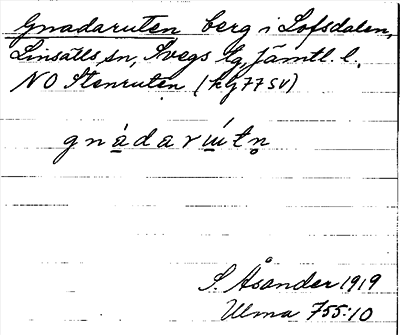 Gnadaruten berg i Lofsdalen,
Linsälls sn, Svegs tg, Jämtl. l.
NO Stenruten (kg 77 SV)
gnàdarɯ́tn̥
S. Åsander 1919
Ulma 755:10